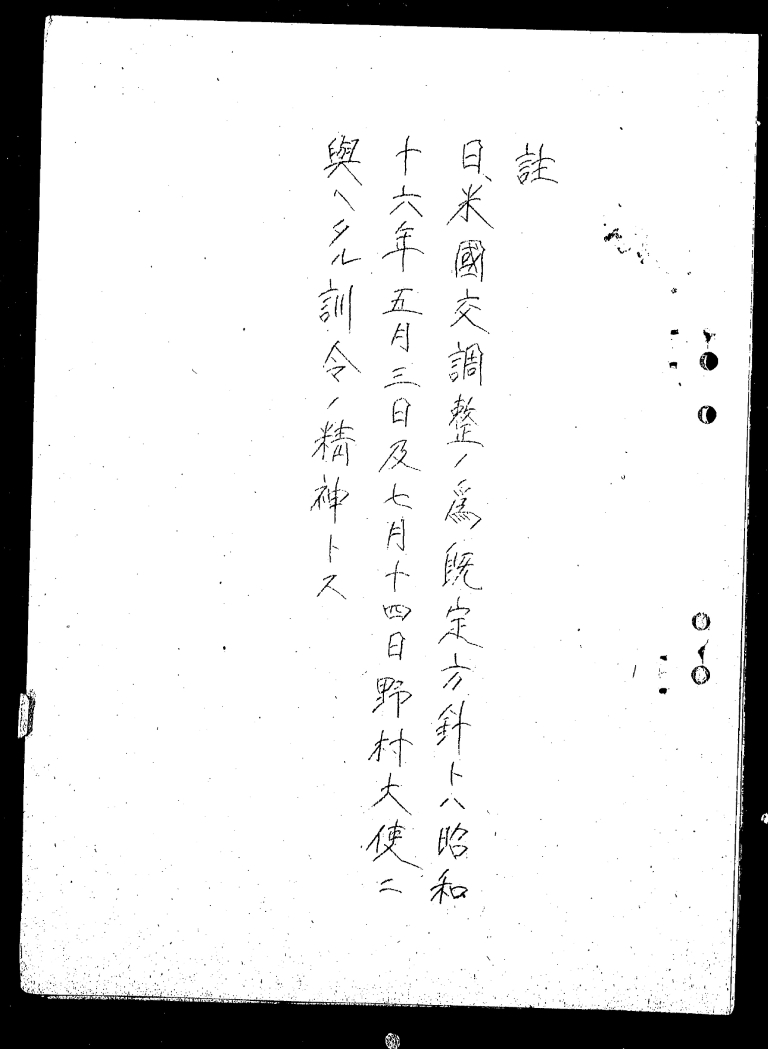 註
日、米國交調整ノ爲既定方針トハ昭和
十六年五月三日及七月十四日野村大使ニ
與ヘタル訓令ノ精神トス